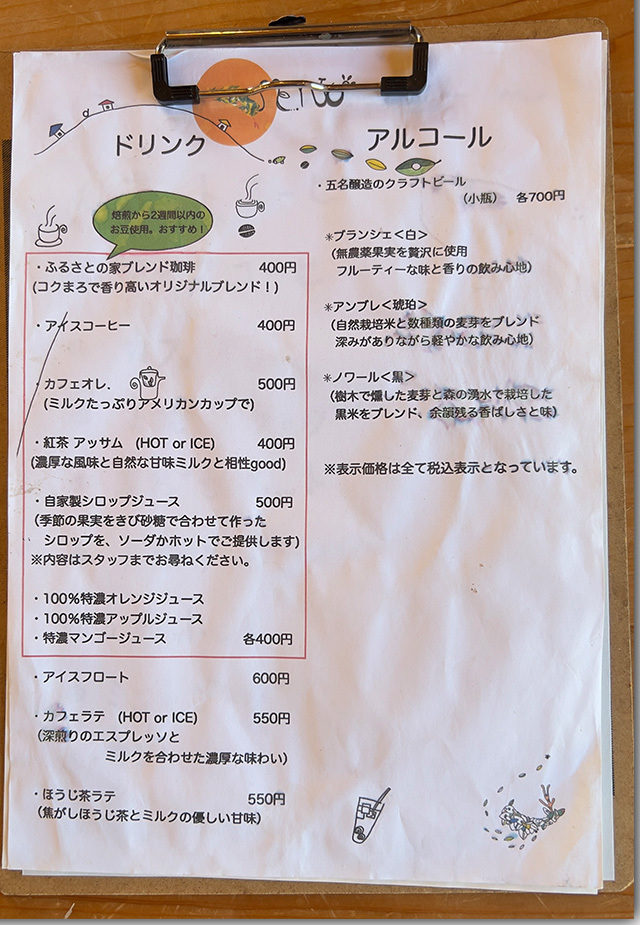 ドリンク
焙煎から2週間以内の
お豆使用。おすすめ！
・ふるさとの家ブレンド珈琲 400円
(コクまろで香り高いオリジナルブレンド！)
・アイスコーヒー 400円
・カフェオレ. 500円
(ミルクたっぷりアメリカンカップで)
・紅茶 アッサム (HOT or ICE) 400円
(濃厚な風味と自然な甘味ミルクと相性good)
・自家製シロップジュース 500円
(季節の果実をきび砂糖で合わせて作った
シロップを、ソーダかホットでご提供します)
※内容はスタッフまでお尋ねください。
・100％特濃オレンジジュース
・100％特濃アップルジュース
・特濃マンゴージュース 各400円
・アイスフロート 600円
・カフェラテ (HOT or ICE) 550円
(深煎りのエスプレッソと
ミルクを合わせた濃厚な味わい)
・ほうじ茶ラテ 550円
(焦がしほうじ茶とミルクの優しい甘味)
アルコール
・五名醸造のクラフトビール
(小瓶) 各700円
✳︎ブランシェ<白>
(無農薬果実を贅沢に使用
フルーティーな味と香りの飲み心地)
✳︎アンブレ<琥珀>
(自然栽培米と数種類の麦芽をブレンド
深みがありながら軽やかな飲み心地)
✳︎ノワール<黒>
(樹木で燻した麦芽と森の湧水で栽培した
黒米をブレンド、余韻残る香ばしさと味)
※表示価格は全て税込表示となっています。